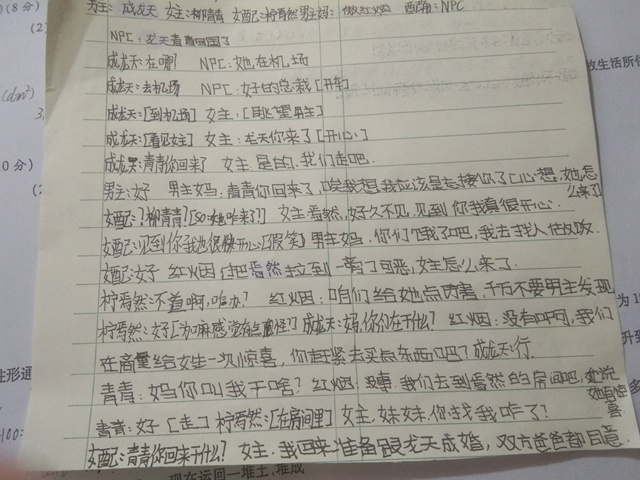 男主：成龙天 女主：柳青青 女配：柠焉然 男主妈：傲红烟 配角：NPC
NPC：龙天青青回国了
成龙天：在哪？ NPC：她在机场
成龙天：去机场 NPC：好的总裁[开车]
成龙天：[到机场] 女主：[眺望男主]
成龙天：[看见女主] 女主：龙天你来了[开心]
成龙天：青青你回来了 女主：是的，我们走吧.
男主：好 男主妈：青青你回来了，唉我想我应该是去接你了[心想，她怎么来了]
女配：？柳青青？[so她咋来了] 女主：焉然，好久不见，见到你我真很开心.
女配：见到你我也很快开心[假笑] 男主妈：你们饿了吧，我去找人做饭.
女配：好 红烟：[把焉然拉到一旁]可恶，女主怎么来了.
柠焉然：不道啊，咱办？ 红烟：咱们给她点厉害，千万不要男主发现
柠焉然：好 成龙天：妈，你们在干什么？ 红烟：没有呀，我们
在商量给女生一次惊喜，你赶紧去买点东西吧？ 成龙天：行.
青青：妈你叫我干啥？ 红烟：没事，我们去到焉然的房间吧，她说她有惊喜多
青青：好[走] 柠焉然：[在房间里] 女主：妹妹，你找我咋了？
女配：青青你回来干什么？ 女主：我回来准备跟龙天成婚，双方爸爸都同意.
8分)
(dm²)
0分)
柱形通
100：
放生活所住
升到
现在运回一堆土，堆成